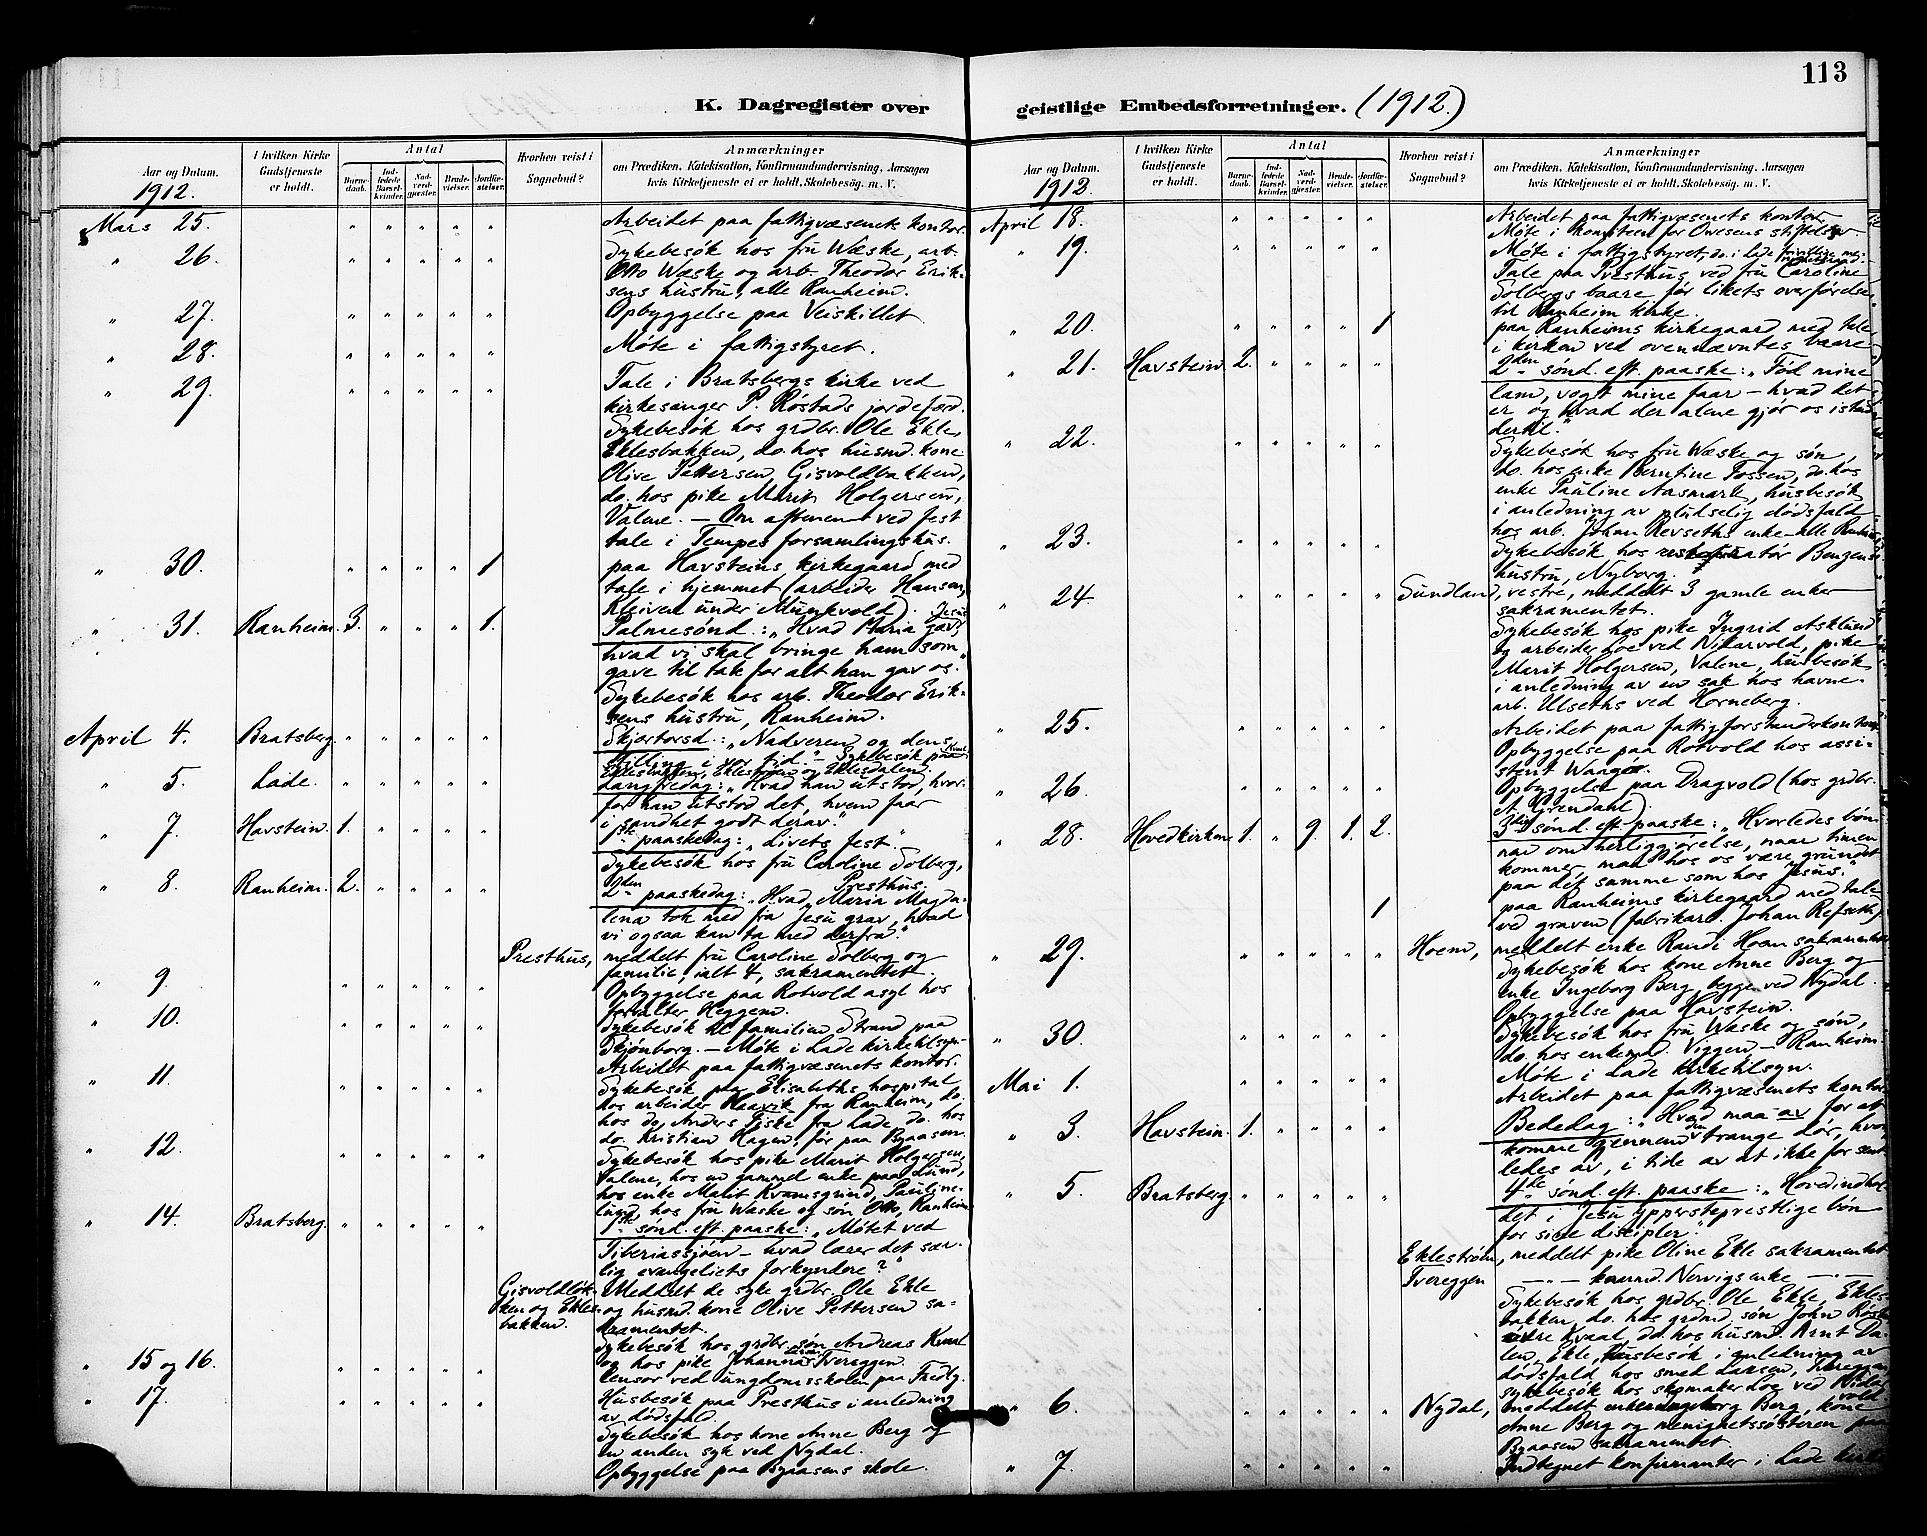 113
K. Dagregister over geistlige Embedsforretninger. (1912.)
Aar og Datum.
1912.
I hvilken Kirke Gudstjeneste er holdt.
Antal
Barnedaab.
Indledede Barselkvinder.
Nadverdgjester.
Brudevielser.
Jordfæstelser.
Hvorhen reist i Sognebud?
Anmærkninger
om Prædiken, Katekisation, Konfirmandundervisning, Aarsagen
hvis Kirketjeneste ei er holdt, Skolebesøg. m. V.
Mars 25. " " " " " Arbeidet paa fattigvæsenets kontor.
" 26. " " " " " Sykebesök hos fru Wæske, arb.
Otto Wæske og arb. Theodor Erik-
sens hustru, alle Ranheim.
" 27. " " " " " Opbyggelse paa Veiskillet.
" 28. " " " " " Möte i fattigstyret.
" 29. " " " " " Tale i Bratsbergs kirke ved
kirkesanger P. Röstads jordefærd.
Sykebesök hos grdbr. Ole Ekle,
Eklesbakken, do. hos husmd. kone
Olive Pettersen, Gisvoldbakken,
do. hos pike Marit Holgersen,
Valene. – Om aftenen ved fest
tale i Tempes forsamlingshus.
" 30. " " " " 1 paa Havsteins kirkegaard med
tale i hjemmet (arbeider Hansen,
Kleiven under Munkvold).
" 31. Ranheim. 3. " " " 1. Palmesönd.: "Hvad Maria gav Jesus,
hvad vi skal bringe ham som
gave til tak for alt han gav os."
Sykebesök hos arb. Theodor Erik-
sens hustru, Ranheim.
April 4. Bratsberg. " " " " " Skjærtorsd.: "Nadveren og dens
stilling i vor tid." – Sykebesök paa
Eklesbakken, Ekleströen og Eklesdalen.
" 5. Lade. " " " " " Langfredag: "Hvad han utstod, hvor-
for han utstod det, hvem faar
i sandhet godt derav."
" 7. Havstein. 1. " " " " 1ste paaskedag: "Livets fest."
Sykebesök hos fru Caroline Solberg,
Presthus.
" 8. Ranheim. 2. " " " " 2den paaskedag: "Hvad Maria Magda-
lena tok med fra Jesu grav, hvad
vi ogsaa kan ta med derfra."
Presthus, meddelt fru Caroline Solberg og
familie, ialt 4, sakramentet.
" 9. " " " " " Opbyggelse paa Rotvold asyl hos
forvalter Heggem.
" 10. " " " " " Sykebesök til familien Strand paa
Skjönborg. – Möte i Lade kirketilsyn.
Arbeidet paa fattigvæsenets kontor.
" 11. " " " " " Sykebesök paa Elisabeths hospital
hos arbeider Haavik fra Ranheim, do.
hos do. Anders Fiske fra Lade, do. hos
do. Kristian Hagen, för paa Byaasen.
" 12. " " " " " Sykebesök hos pike Marit Holgersen,
Valene, hos en gammel enke paa Lund,
hos enke Marit Kvamsgrind, Pauline-
lund, hos fru Wæske og søn Otto, Ranheim
" 14. Bratsberg. " " " " " 1ste sönd. eft. paaske: "Mötet ved
Tiberiassjöen – hvad lærer det sær-
lig evangeliets forkyndere?"
Gisvoldbak-
ken og Ekles-
bakken. Meddelt de syke grdbr. Ole Ekle
og husmd. kone Olive Pettersen sa-
kramentet.
Sykebesök hos grdbr. søn Andreas Kvaal
og hos pike Johanna Tvereggen.
" 15 og 16. " " " " " Censor ved ungdomsskolen paa Fredly.
" 17. " " " " " Husbesök paa Presthus i anledning
av dödsfald.
Sykebesök hos kone Anne Berg og
en anden syk ved Nydal.
Opbyggelse paa Byaasens skole.
Aar og Datum.
1912.
I hvilken Kirke Gudstjeneste er holdt.
Antal
Barnedaab.
Indledede Barselkvinder.
Nadverdgjester.
Brudevielser.
Jordfæstelser.
Hvorhen reist i Sognebud?
Anmærkninger
om Prædiken, Katekisation, Konfirmandundervisning, Aarsagen
hvis Kirketjeneste ei er holdt. Skolebesøg. m. V.
April 18. " " " " " Arbeidet paa fattigvæsenets kontor.
Möte i komiteen for Owesens stiftelser
" 19. " " " " " Möte i fattigstyret, do. i Lade
Tale paa Presthus ved fru Caroline
Solbergs baare för likets overförelse
til Ranheim kirke.
" 20. " " " " 1 paa Ranheims kirkegaard med tale
i kirken ved ovennævntes baare
" 21. Havstein. 2. " " " " 2den sönd. eft. paaske: "Föd mine
lam, vogt mine faar – hvad det
er og hvad der alene gjör os istand
dertil."
" 22. " " " " " Sykebesök hos fru Wæske og sön,
do. hos enke Berntine Fossen, do. hos
enke Pauline Aasmark, husbesök
i anledning av pludselig dödsfald
hos arb. Johan Revseths enke – alle Ranheim
" 23. " " " " " Sykebesök hos restauratör Bengens
hustru, Nyborg.
" 24. " " " " " Sundland, vestre, meddelt 3 gamle enker
sakramentet.
Sykebesök hos pike Ingrid Asklund
og arbeider Moe ved Nidarvold, pike
Marit Holgersen, Valene, husbesök
i anledning av en sak hos havne-
arb. Ulseths ved Horneberg.
" 25. " " " " " Arbeidet paa fattigforstanderkontoret
Opbyggelse paa Rotvold hos assi-
stent Waagö.
" 26. " " " " " Opbyggelse paa Dragvold (hos grdbr.
A. Grendahl).
" 28. Hovedkirken 1. " 9. 1. 2. 3die sönd. eft. paaske: "Hvorledes bön-
nen om herliggjörelse, naar timen
kommer, maa hos os være grundet
paa det samme som hos Jesus."
1 paa Ranheims kirkegaard med tale
ved graven (fabrikarb. Johan Refseth).
" 29. " " " " " Hoem, meddelt enke Randi Hoem sakramentet
Sykebesök hos kone Anne Berg og
enke Ingeborg Berg, begge ved Nydal.
Opbyggelse paa Havstein.
" 30. " " " " " Sykebesök hos fru Wæske og sön,
do. hos enkemd. Viggen – Ranheim.
Möte i Lade kirketilsyn.
Mai 1. " " " " " Arbeidet paa fattigvæsenets kontor
" 3. Havstein. 1. " " " " Bededag: "Hvad maa av for at
komme gjennem den trange dör, hvor-
ledes av, i tide av at ikke for sent
" 5. Bratsberg. " " " " " 4de sönd. eft. paaske: "Hovedindhol-
det i Jesu ypperstepræstlige bön
for sine disipler."
Ekleströen, meddelt pike Oline Ekle sakramentet
Tvereggen – " – kaarmd. Nervigs enke – " –
Sykebesök hos grdbr. Ole Ekle, Ekles-
bakken, do. hos grdmd. sön John Röstad
övre Kvaal, do. hos husmd. Arnt Da-
len, Ekle, husbesök i anledning av
dödsfald hos smed Larsen, Tvereggen
sykebesök hos skomaker Moe ved Nidar-
vold.
" 6. " " " " " Nydal, meddelt enke Ingeborg Berg, kone
Anne Berg og menighetssösteren paa
Byaasen sakramentet.
" 7. " " " " " Indtegnet konfirmanter i Lade kirke